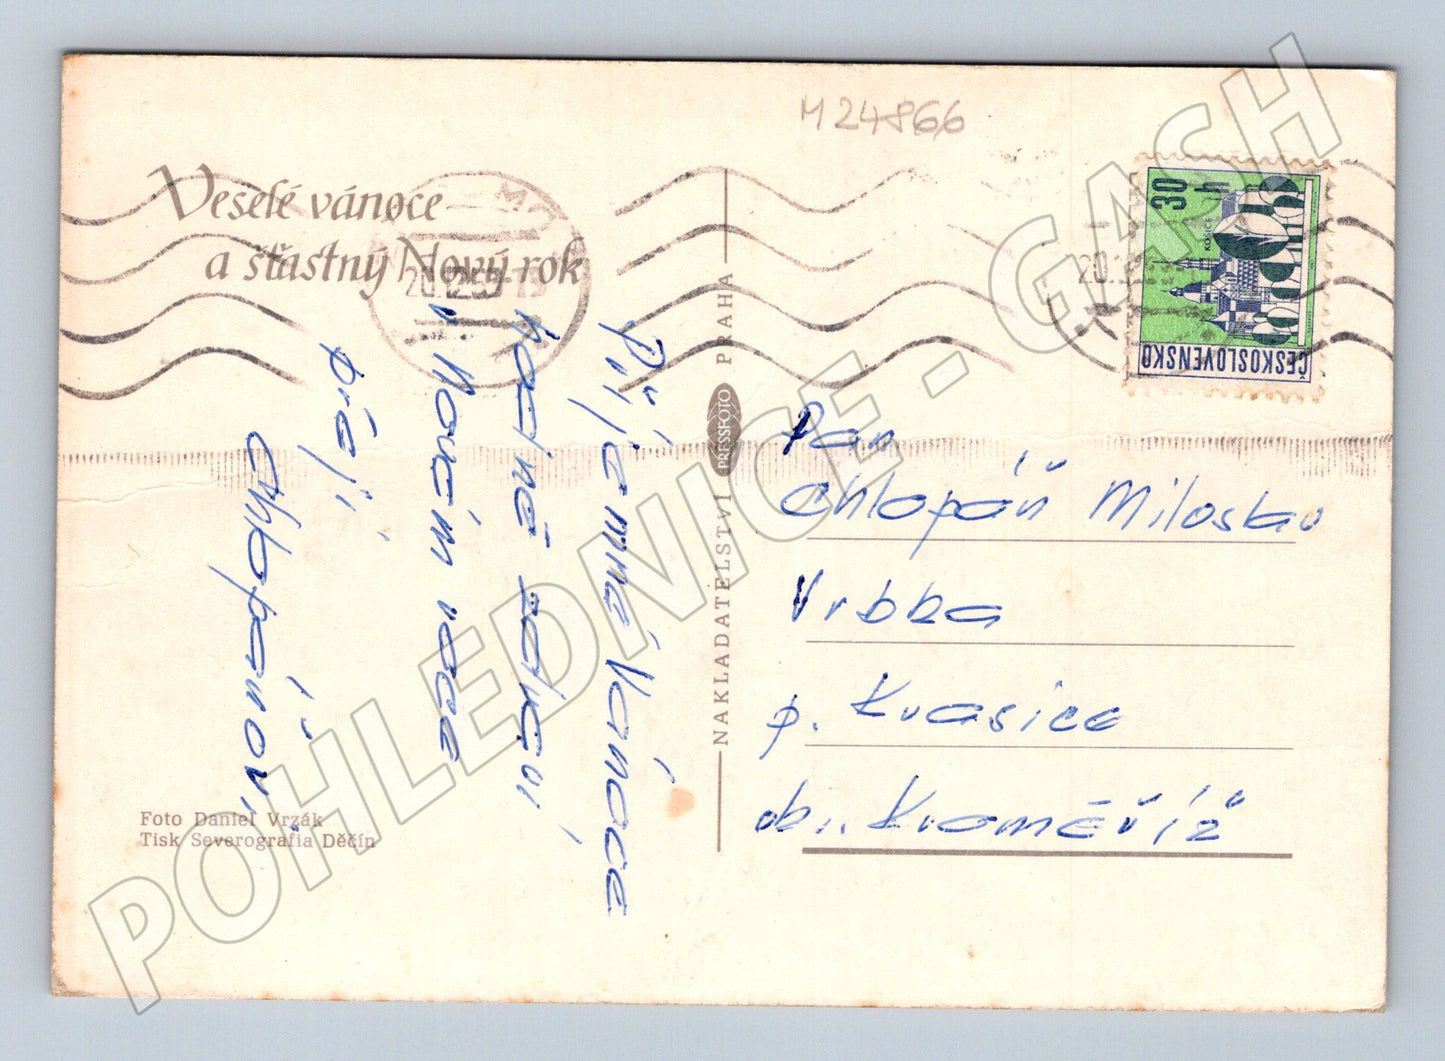 M 24866
Veselé vánoce
a šťastný Nový rok
Příjemné Vánoce
hodně zdraví
v Novém roce
přejí
Chlopánovi
Foto Daniel Vrzák
Tisk Severografia Děčín
NAKLADATELSTVÍ PRESSFOTO PRAHA
30 h
KOŠICE
ČESKOSLOVENSKO
Pan
Chlopáň Miloslav
Vrbka
p. Kvasice
okr. Kroměříž
POHLEDNICE - GASH